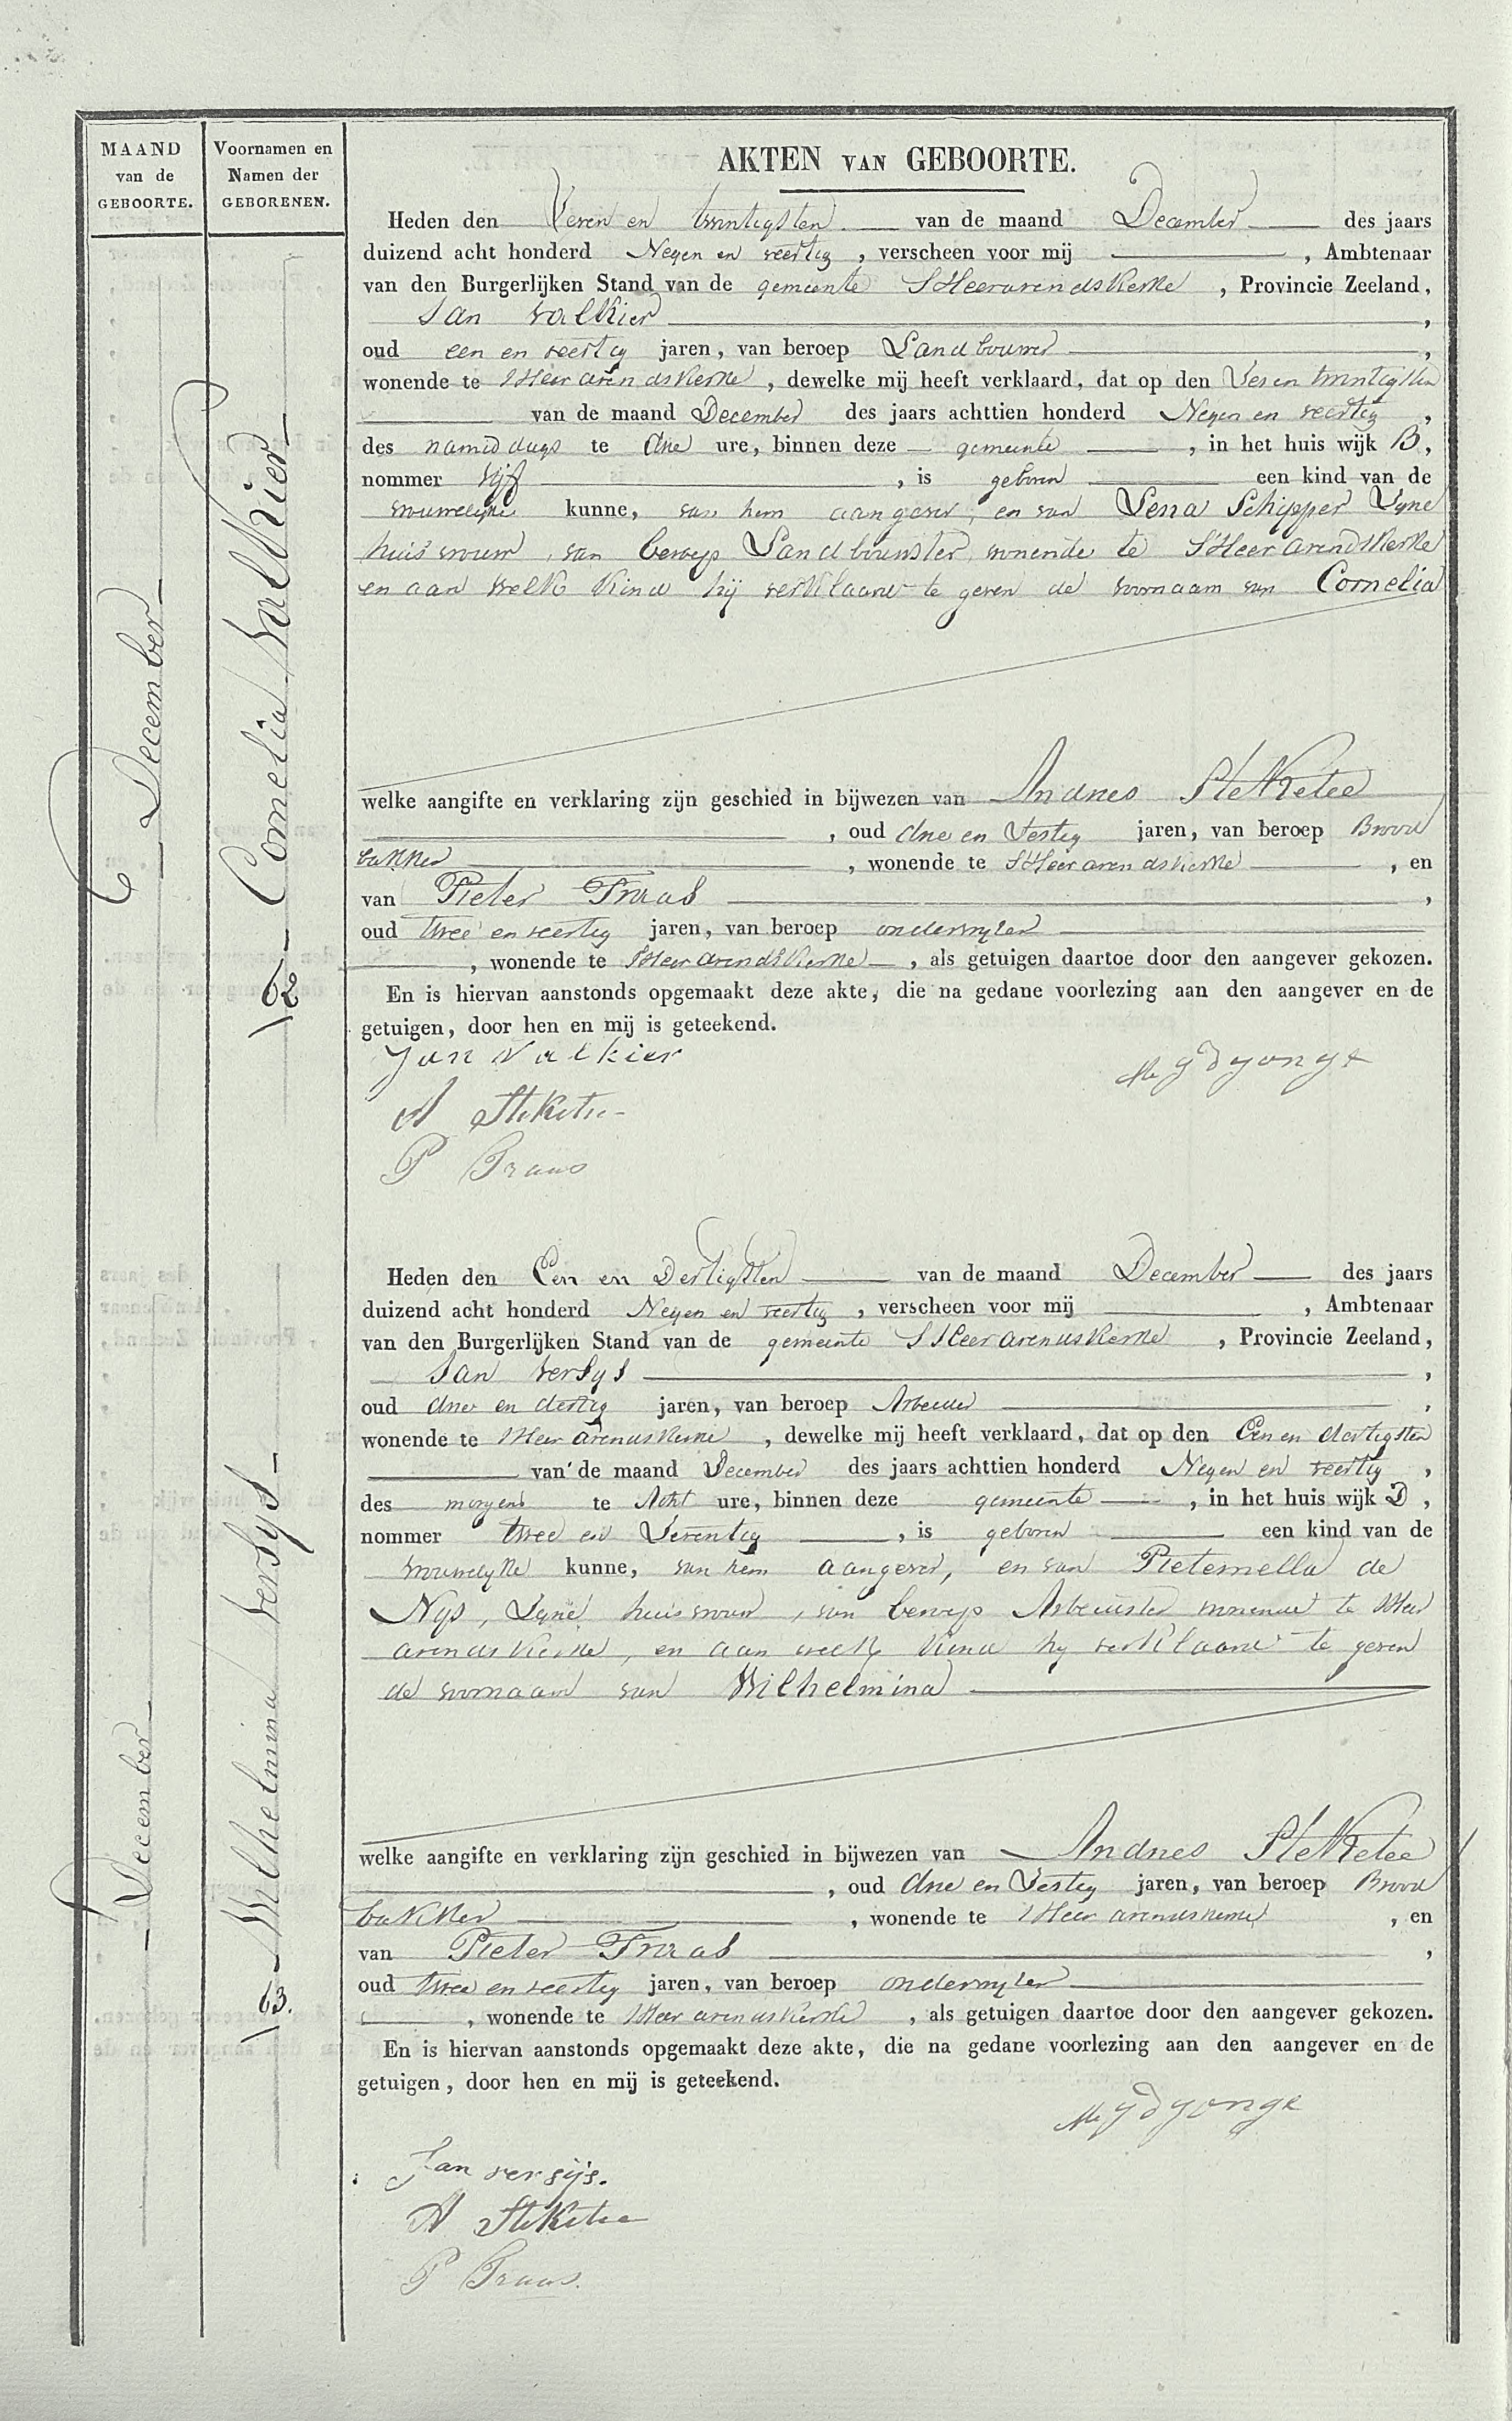 MAAND
van de
GEBOORTE.
Voornamen en
Namen der
GEBORENEN.
AKTEN VAN GEBOORTE.
December
Cornelia Valkier
62
Heden den Zeven en twintigsten van de maand December des jaars
duizend acht honderd Negen en veertig, verscheen voor mij , Ambtenaar
van den Burgerlijken Stand van de gemeente 'SHeerarendskerke, Provincie Zeeland,
Jan Valkier,
oud een en veertig jaren, van beroep Landbouwer,
wonende te 'SHeerarendskerke, dewelke mij heeft verklaard, dat op den Zes en twintigsten
van de maand December des jaars achttien honderd Negen en veertig,
des namiddags te drie ure, binnen deze gemeente, in het huis wijk B,
nommer vijf, is geboren een kind van de
vrouwelijke kunne, van hem aangever, en van Lena Schipper Zyne
huisvrouw, van beroep Landbouwster, wonende te 'SHeerarendskerke
en aan welk kind hij verklaard te geven de voornaam van Cornelia
welke aangifte en verklaring zijn geschied in bijwezen van Andries Steketee
, oud drie en Zestig jaren, van beroep Brood
bakker, wonende te 'SHeerarendskerke, en
van Pieter Fraas,
oud twee en veertig jaren, van beroep onderwyzer
, wonende te 'SHeerarendskerke, als getuigen daartoe door den aangever gekozen.
En is hiervan aanstonds opgemaakt deze akte, die na gedane voorlezing aan den aangever en de
getuigen, door hen en mij is geteekend.
Jan Valkier
A Steketee
P Fraas
December
Wilhelmina Versys
63.
Heden den Een en Dertigsten van de maand December des jaars
duizend acht honderd Negen en veertig, verscheen voor mij , Ambtenaar
van den Burgerlijken Stand van de gemeente 'SHeerarendskerke, Provincie Zeeland,
Jan Versys,
oud drie en dertig jaren, van beroep Arbeider,
wonende te 'SHeerarendskerke, dewelke mij heeft verklaard, dat op den Een en dertigsten
van de maand December des jaars achttien honderd Negen en veertig,
des morgens te Acht ure, binnen deze gemeente, in het huis wijk D,
nommer twee en Zeventig, is geboren een kind van de
vrouwelyke kunne, van hem aangever, en van Pieternella de
Nys, Zyne huisvrouw, van beroep Arbeidster wonende te 'SHeer
arendskerke, en aan welk kind hy verklaard te geven
de voornaam van Wilhelmina
welke aangifte en verklaring zijn geschied in bijwezen van Andries Steketee
, oud drie en Zestig jaren, van beroep Brood
bakker, wonende te 'SHeerarendskerke, en
van Pieter Fraas,
oud twee en veertig jaren, van beroep onderwyzer
, wonende te 'SHeerarendskerke, als getuigen daartoe door den aangever gekozen.
En is hiervan aanstonds opgemaakt deze akte, die na gedane voorlezing aan den aangever en de
getuigen, door hen en mij is geteekend.
Jan versijs.
A Steketee
P Fraas.